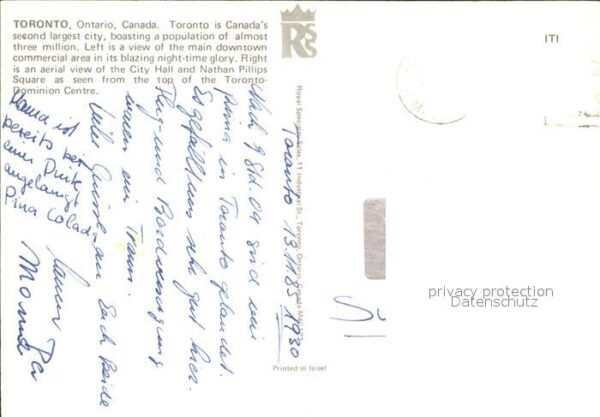 TORONTO, Ontario, Canada. Toronto is Canada's
second largest city, boasting a population of almost
three million. Left is a view of the main downtown
commercial area in its blazing night-time glory. Right
is an aerial view of the City Hall and Nathan Phillips
Square as seen from the top of the Toronto-
Dominion Centre.
RSS
ITI
Royal Specialty Sales, 11 Industrial St., Toronto, Ontario, Canada
Toronto 13.11.85 1930
Nach 9 Std. 04 sind wir
prima in Toronto gelandet.
Es gefällt uns sehr gut hier.
Flug und Bordversorgung
waren ein Traum.
Viele Grüsse an Euch beide
Mama ist
bereits bei
einer
angelangt
Pina Colada
Printed in Israel
privacy protection
Datenschutz